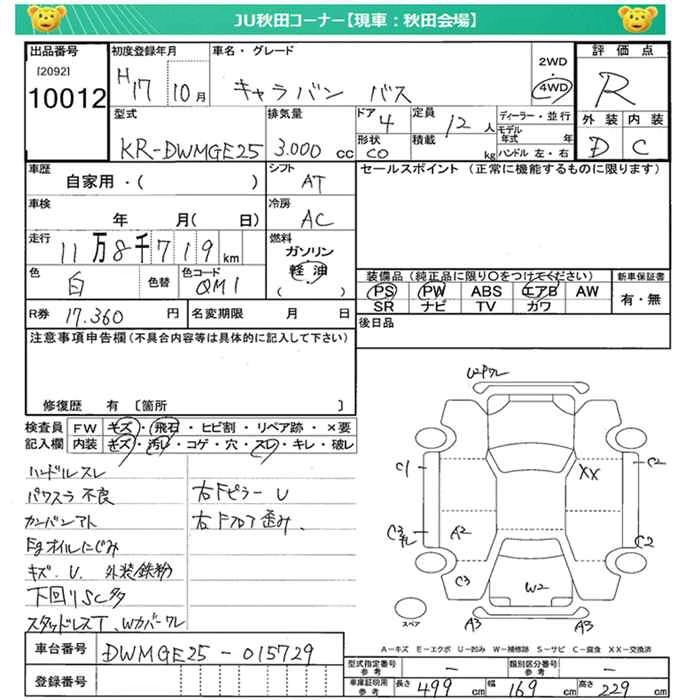 JU秋田コーナー【現車：秋田会場】
出品番号
[2092]
10012
初度登録年月
H17 10月
車名・グレード
キャラバン バス
2WD
・
4WD
評価点
R
外装 内装
D C
型式
KR-DWMGE25
排気量
3.000 cc
ドア
4
形状
CO
定員
12人
積載
kg
ディーラー・並行
モデル年式 年
ハンドル 左・右
車歴
自家用・( )
シフト
AT
セールスポイント（正常に機能するものに限ります）
車検
年 月( 日)
冷房
AC
走行
11万8千719km
燃料
ガソリン
軽油
( )
色
白
色替
色コード
QM1
装備品（純正品に限り○をつけてください）
PS PW ABS エアB AW
SR ナビ TV カワ
新車保証書
有・無
R券 17.360 円
名変期限 月 日
後日品
注意事項申告欄（不具合内容等は具体的に記入して下さい）
修復歴 有 〔箇所 〕
検査員記入欄
FW キズ・飛石・ヒビ割・リペア跡・×要
内装 キズ・汚レ・コゲ・穴・スレ・キレ・破レ
ハンドルスレ
パワスラ不良
カンバンアト
Egオイルにじみ
キズ.U. 外装鉄粉
下回りSC多
スタッドレスT、Wカバーワレ
右Fピラー U
右Fフロア歪み、
U2ワレ
C1
C2
XX
C3
ワレ
A2
C2
C3
W2
A3
A3
スペア
A−キズ E−エクボ U−凹み W−補修跡 S−サビ C−腐食 XX−交換済
車台番号
DWMGE25-015729
登録番号
型式指定番号 参考 −
類別区分番号 参考 −
車庫証明用 参考
長さ 499cm
幅 169cm
高さ 229cm